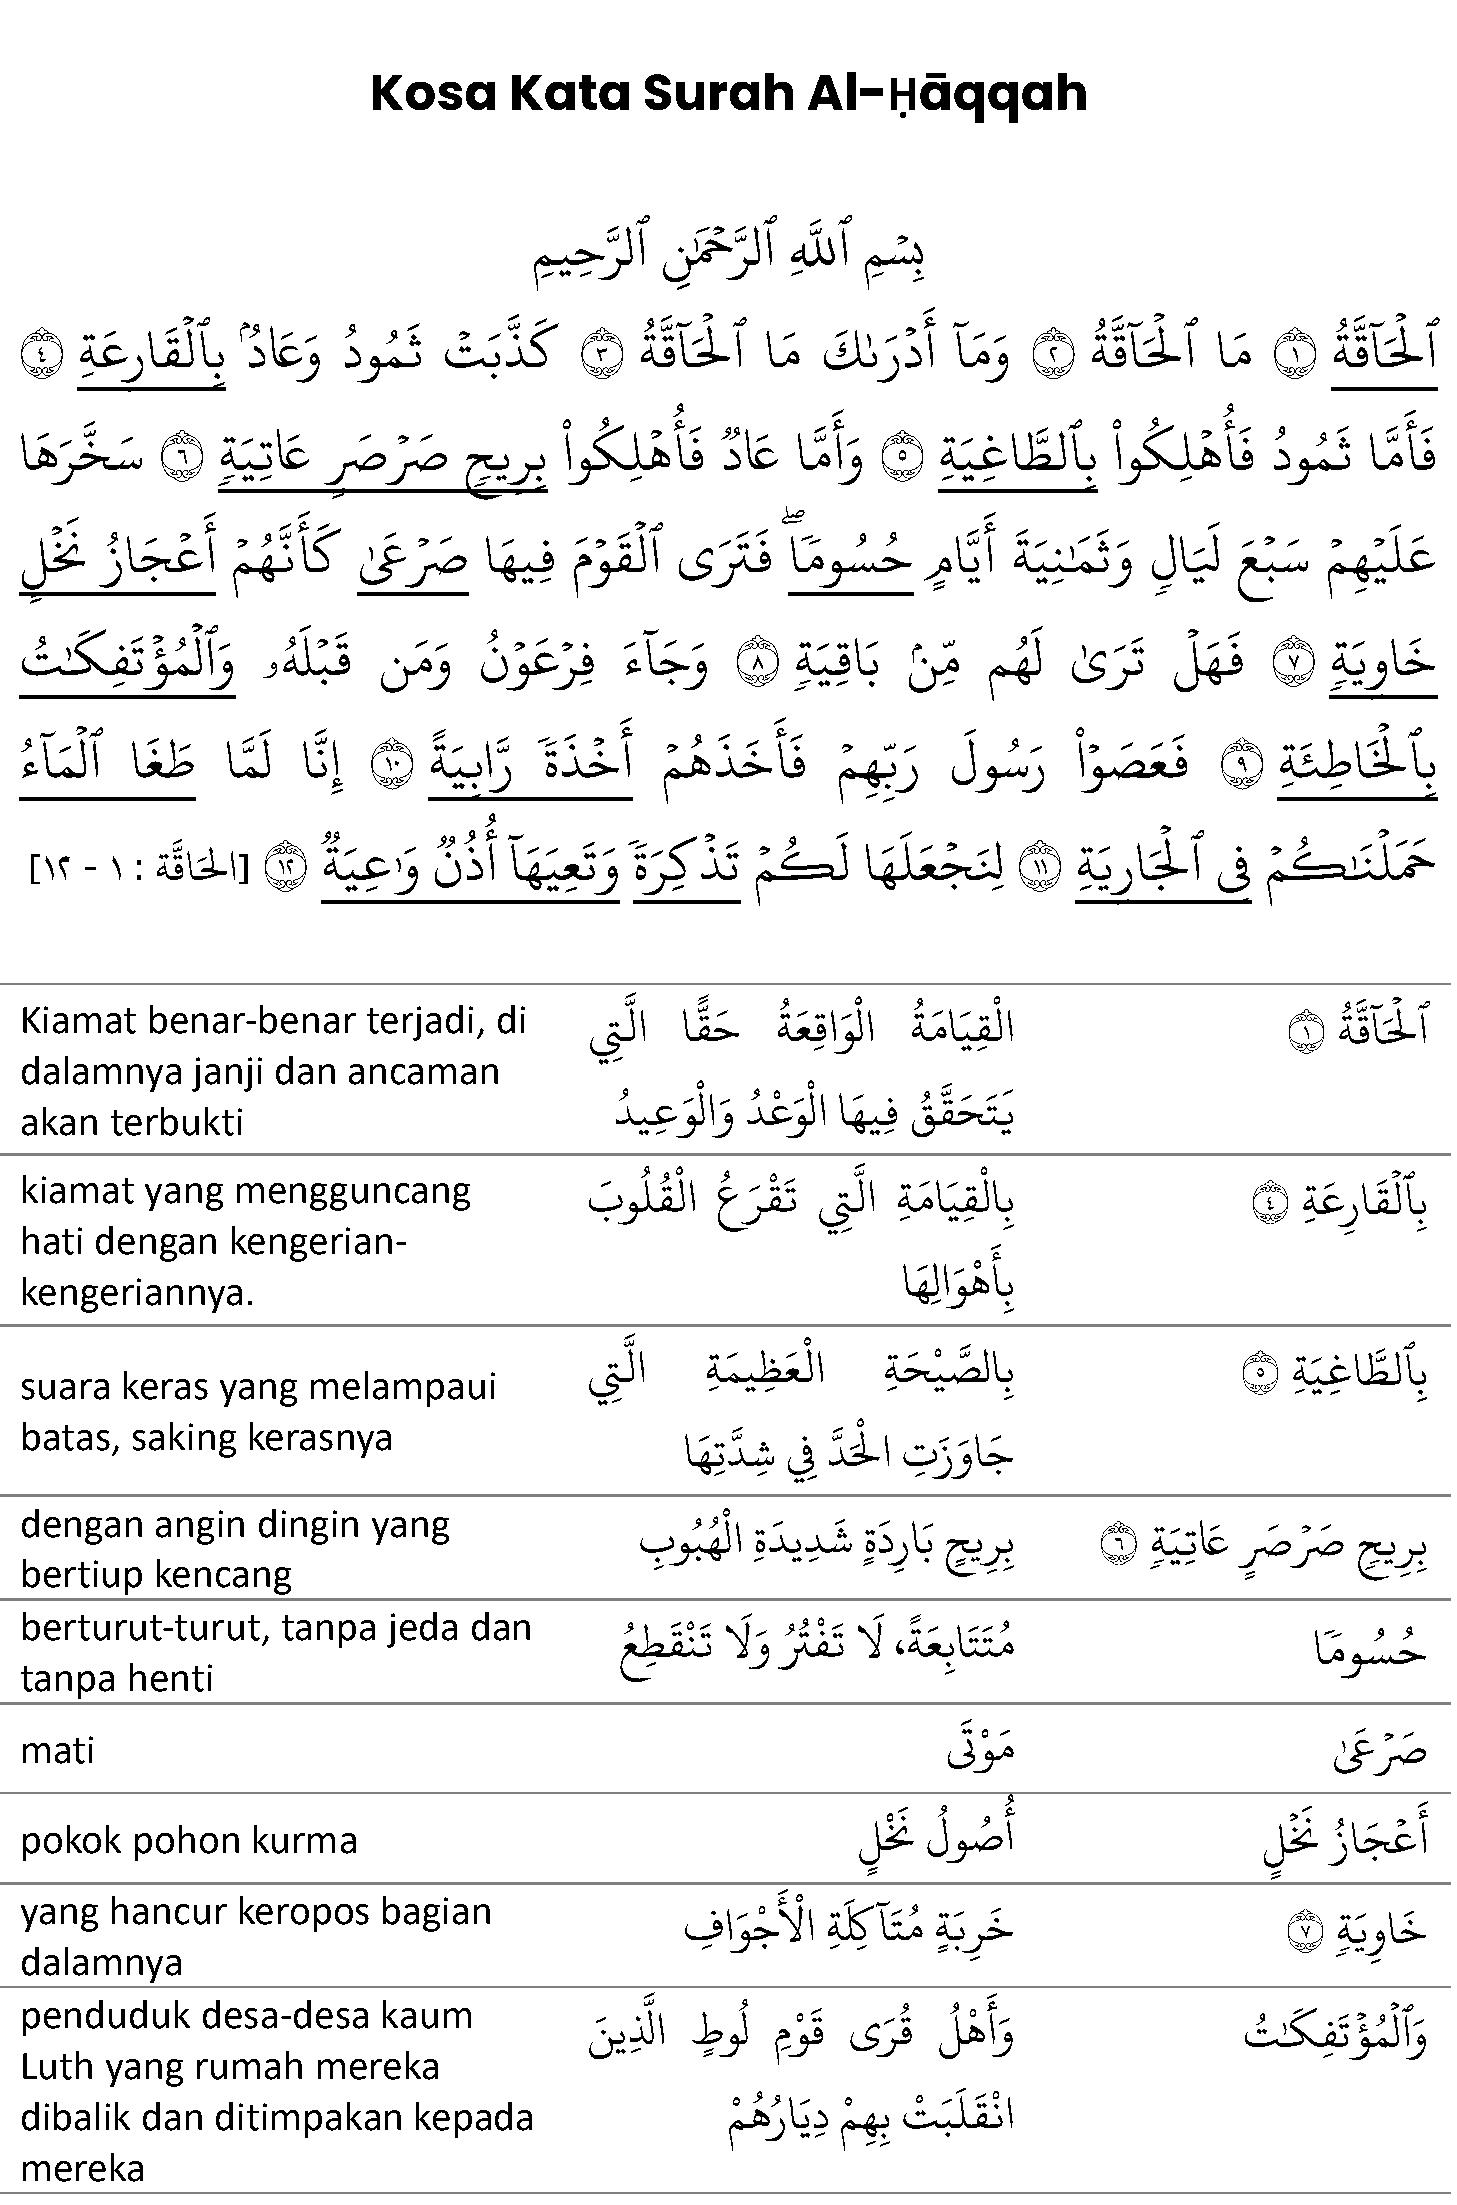 Kosa Kata Surah Al-Ḥāqqah
بِسۡمِ ٱللَّهِ ٱلرَّحۡمَٰنِ ٱلرَّحِيمِ
ٱلۡحَآقَّةُ ١ مَا ٱلۡحَآقَّةُ ٢ وَمَآ أَدۡرَىٰكَ مَا ٱلۡحَآقَّةُ ٣ كَذَّبَتۡ ثَمُودُ وَعَادُۢ بِٱلۡقَارِعَةِ ٤
فَأَمَّا ثَمُودُ فَأُهۡلِكُواْ بِٱلطَّاغِيَةِ ٥ وَأَمَّا عَادٞ فَأُهۡلِكُواْ بِرِيحٖ صَرۡصَرٍ عَاتِيَةٖ ٦ سَخَّرَهَا
عَلَيۡهِمۡ سَبۡعَ لَيَالٖ وَثَمَٰنِيَةَ أَيَّامٍ حُسُومٗاۖ فَتَرَى ٱلۡقَوۡمَ فِيهَا صَرۡعَىٰ كَأَنَّهُمۡ أَعۡجَازُ نَخۡلٍ
خَاوِيَةٖ ٧ فَهَلۡ تَرَىٰ لَهُم مِّنۢ بَاقِيَةٖ ٨ وَجَآءَ فِرۡعَوۡنُ وَمَن قَبۡلَهُۥ وَٱلۡمُؤۡتَفِكَٰتُ
بِٱلۡخَاطِئَةِ ٩ فَعَصَوۡاْ رَسُولَ رَبِّهِمۡ فَأَخَذَهُمۡ أَخۡذَةٗ رَّابِيَةً ١٠ إِنَّا لَمَّا طَغَا ٱلۡمَآءُ
حَمَلۡنَٰكُمۡ فِي ٱلۡجَارِيَةِ ١١ لِنَجۡعَلَهَا لَكُمۡ تَذۡكِرَةٗ وَتَعِيَهَآ أُذُنٞ وَٰعِيَةٞ ١٢ [الحَاقَّة : ١ - ١٢]
ٱلۡحَآقَّةُ ١
الْقِيَامَةُ الْوَاقِعَةُ حَقًّا الَّتِي
يَتَحَقَّقُ فِيهَا الْوَعْدُ وَالْوَعِيدُ
Kiamat benar-benar terjadi, di
dalamnya janji dan ancaman
akan terbukti
بِٱلۡقَارِعَةِ ٤
بِالْقِيَامَةِ الَّتِي تَقْرَعُ الْقُلُوبَ
بِأَهْوَالِهَا
kiamat yang mengguncang
hati dengan kengerian-
kengeriannya.
بِٱلطَّاغِيَةِ ٥
بِالصَّيْحَةِ الْعَظِيمَةِ الَّتِي
جَاوَزَتِ الْحَدَّ فِي شِدَّتِهَا
suara keras yang melampaui
batas, saking kerasnya
بِرِيحٖ صَرۡصَرٍ عَاتِيَةٖ ٦
بِرِيحٍ بَارِدَةٍ شَدِيدَةِ الْهُبُوبِ
dengan angin dingin yang
bertiup kencang
حُسُومٗا
مُتَتَابِعَةً، لَا تَفْتُرُ وَلَا تَنْقَطِعُ
berturut-turut, tanpa jeda dan
tanpa henti
صَرۡعَىٰ
مَوْتَى
mati
أَعۡجَازُ نَخۡلٍ
أُصُولُ نَخْلٍ
pokok pohon kurma
خَاوِيَةٖ ٧
خَرِبَةٍ مُتَآكِلَةِ الْأَجْوَافِ
yang hancur keropos bagian
dalamnya
وَٱلۡمُؤۡتَفِكَٰتُ
وَأَهْلُ قُرَى قَوْمِ لُوطٍ الَّذِينَ
انْقَلَبَتْ بِهِمْ دِيَارُهُمْ
penduduk desa-desa kaum
Luth yang rumah mereka
dibalik dan ditimpakan kepada
mereka